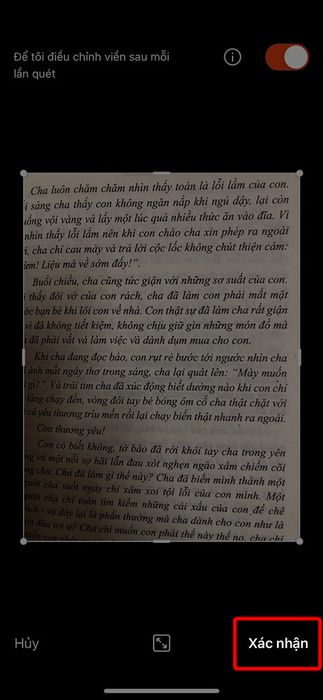 Để tôi điều chỉnh viền sau mỗi
lần quét
Cha luôn chăm chăm nhìn thấy toàn là lỗi lầm của con.
sáng cha thấy con không ngăn nắp khi ngủ dậy, lại còn
uống vội vàng và lấy một lúc quá nhiều thức ăn vào đĩa. Vì
nhìn thấy lỗi lầm nên khi con chào cha xin phép ra ngoài
, cha chỉ cau mày và trả lời cộc lốc không chút thiện cảm:
ừm! Liệu mà về sớm đấy!".
Buổi chiều, cha cũng tức giận với những sơ suất của con.
thấy đôi vớ của con rách, cha đã làm con phải mất mặt
bạn bè khi lôi con về nhà. Con thật sự đã làm cha rất giận
vì đã không tiết kiệm, không chịu giữ gìn những món đồ mà
đã phải vất vả làm việc và dành dụm mua cho con.
Khi cha đang đọc báo, con rụt rè bước tới ngước nhìn cha
ánh mắt ngây thơ trong sáng, cha lại quát lên: "Mày muốn
gì?". Và trái tim cha đã xúc động biết dường nào khi con chỉ
lặng chạy đến, vòng đôi tay bé bỏng ôm cổ cha thật chặt với
cả yêu thương trìu mến rồi lại chạy biến thật nhanh ra ngoài.
Con thương yêu!
Con có biết không, tờ báo đã rời khỏi tay cha trong yên
và một nỗi sợ hãi lẫn đau xót nghẹn ngào xâm chiếm cõi
cha. Cha đã làm gì thế này? Cha đã biến mình thành một
người cha suốt ngày chỉ xăm xoi tội lỗi của con mình. Một
người cha chỉ toàn tìm kiếm những cái xấu của con để chê
- và đây lại là phần thưởng mà cha dành cho con như là
đứa trẻ ư? Cha chỉ muốn con phải thế này thế nọ, cha chỉ
Hủy
Xác nhận